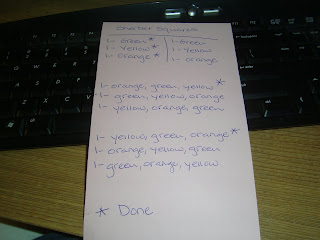 Crochet Squares
1- Green * 1- Green
1- Yellow * 1- Yellow
1- orange * 1- orange
1- orange, green, yellow *
1- green, yellow, orange
1- yellow, orange, green
1- yellow, green, orange *
1- orange, yellow, green
1- green, orange, yellow
* Done